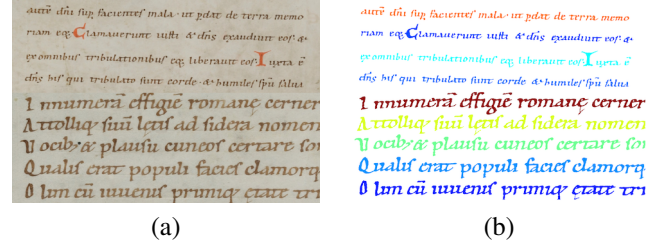 autē dn̄i suꝑ facientes mala · ut ꝑdat de terra memo
riam eoꝝ· Clamauerunt iusti & dn̄s exaudiuit eos· &
ex omnibus tribulationibus eoꝝ liberauit eos· Iuxta ē
dn̄s his qui tribulato sunt corde & humiles sp̄u salua
Innumerā effigiē romanę cerner
Attolliq; lętis ad sidera nomen
Vocib; & plausu cuneos certare
Qualis erat populi facies clamorq
Olim cū iuuenis primiq; ętate tri
(a)
autē dn̄i suꝑ facientes mala · ut ꝑdat de terra memo
riam eoꝝ· Clamauerunt iusti & dn̄s exaudiuit eos· &
ex omnibus tribulationibus eoꝝ liberauit eos· Iuxta ē
dn̄s his qui tribulato sunt corde & humiles sp̄u salua
Innumerā effigiē romanę cerner
Attolliq; lętis ad sidera nomen
Vocib; & plausu cuneos certare
Qualis erat populi facies clamorq
Olim cū iuuenis primiq; ętate tri
(b)